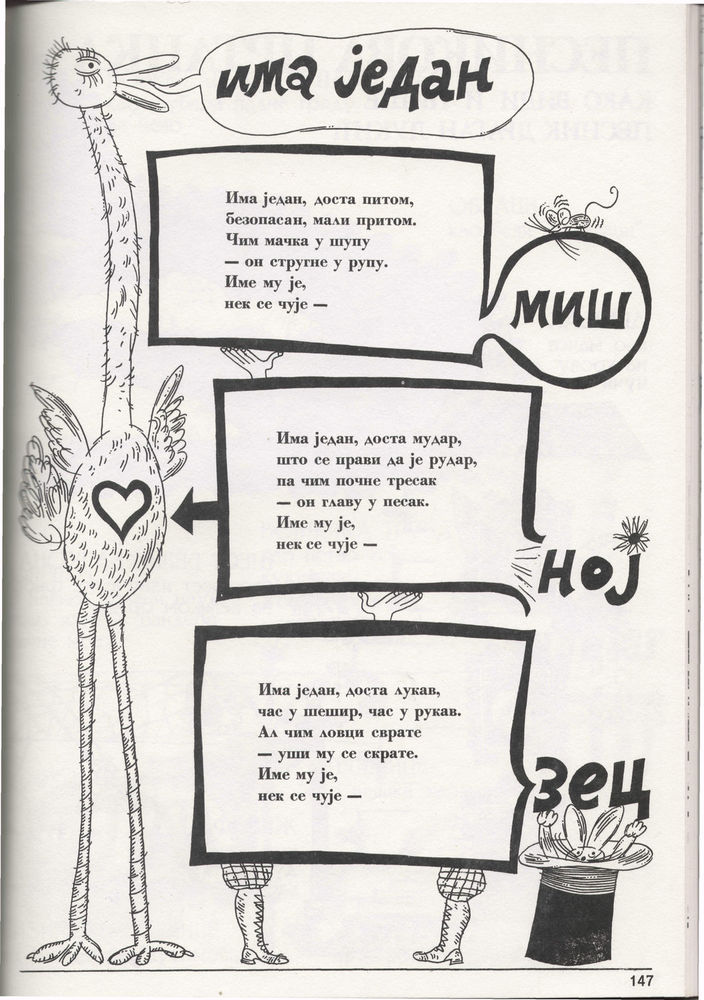 има један
Има један, доста питом,
безопасан, мали притом.
Чим мачка у шупу
— он стругне у рупу.
Име му је,
нек се чује —
миш
Има један, доста мудар,
што се прави да је рудар,
па чим почне тресак
— он главу у песак.
Име му је,
нек се чује —
ној
Има један, доста лукав,
час у шешир, час у рукав.
Ал чим ловци сврате
— уши му се скрате.
Име му је,
нек се чује —
зец
147